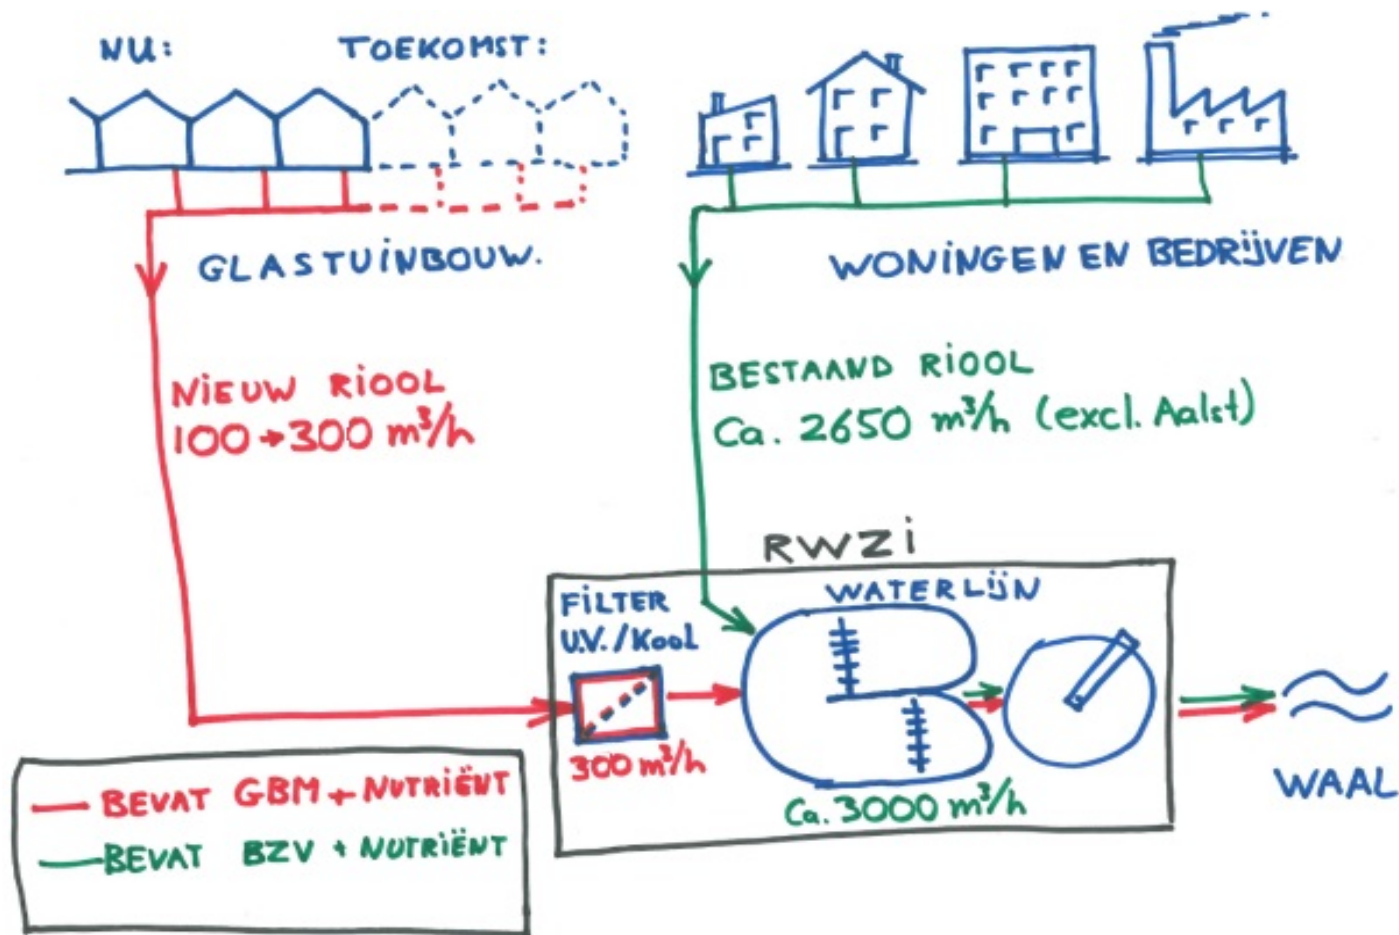 NU:
TOEKOMST:
GLASTUINBOUW.
WONINGEN EN BEDRIJVEN
NIEUW RIOOL
100→300 m³/h
BESTAAND RIOOL
Ca. 2650 m³/h (excl. Aalst)
RWZi
FILTER
U.V./Kool
WATERLIJN
300 m³/h
Ca. 3000 m³/h
WAAL
BEVAT GBM + NUTRIËNT
BEVAT BZV + NUTRIËNT